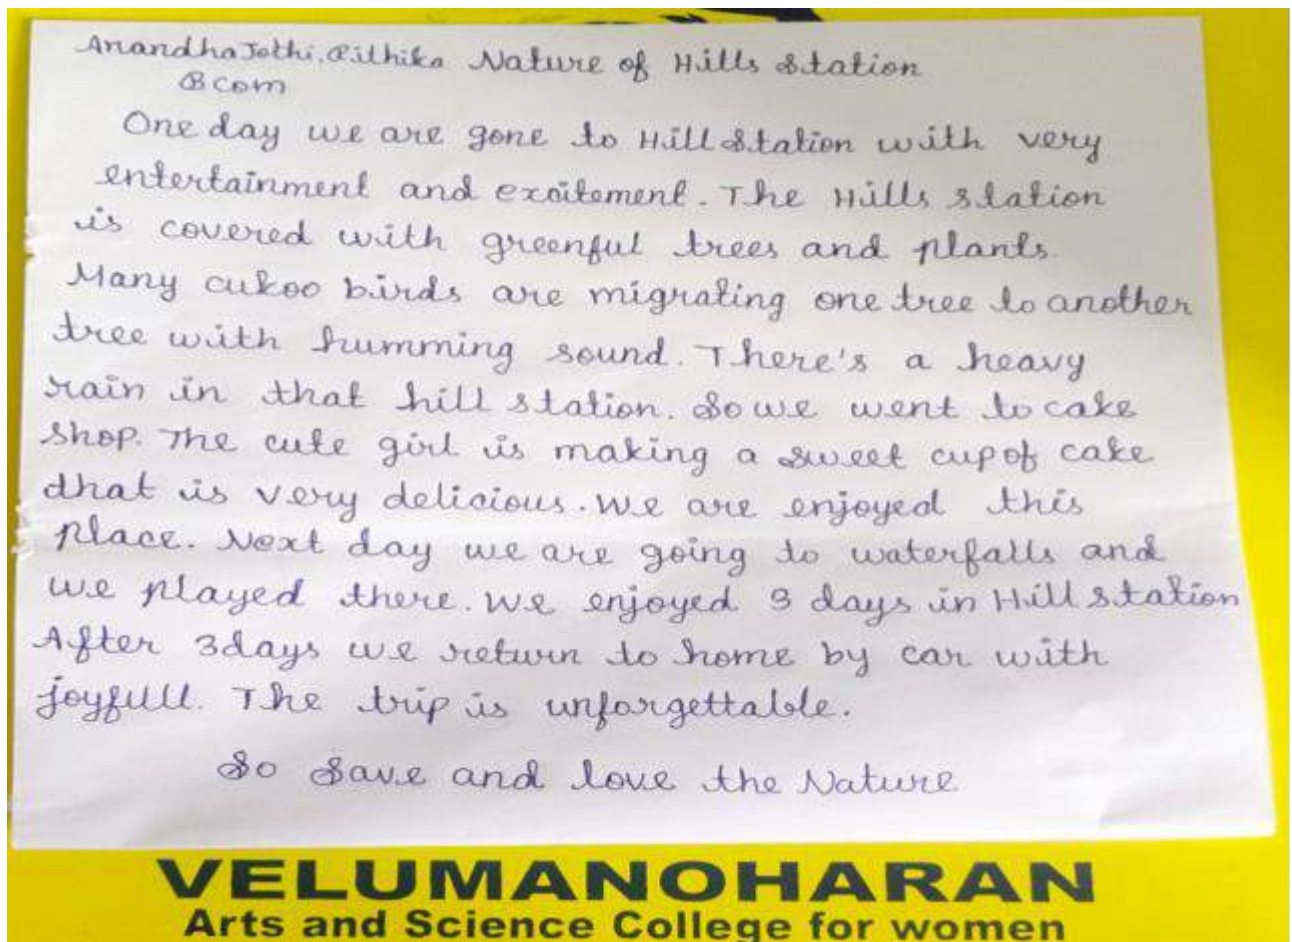 AnandhaJothi. Rithika Nature of Hills Station
B com
One day we are gone to Hill Station with very
entertainment and excitement. The Hills station
is covered with greenful trees and plants.
Many cukoo birds are migrating one tree to another
tree with humming sound. There's a heavy
rain in that hill station. So we went to cake
shop. The cute girl is making a sweet cup of cake
that is very delicious. We are enjoyed this
place. Next day we are going to waterfalls and
we played there. We enjoyed 3 days in Hill station
After 3days we return to home by car with
joyfull. The trip is unforgettable.
So Save and love the Nature
VELUMANOHARAN
Arts and Science College for women